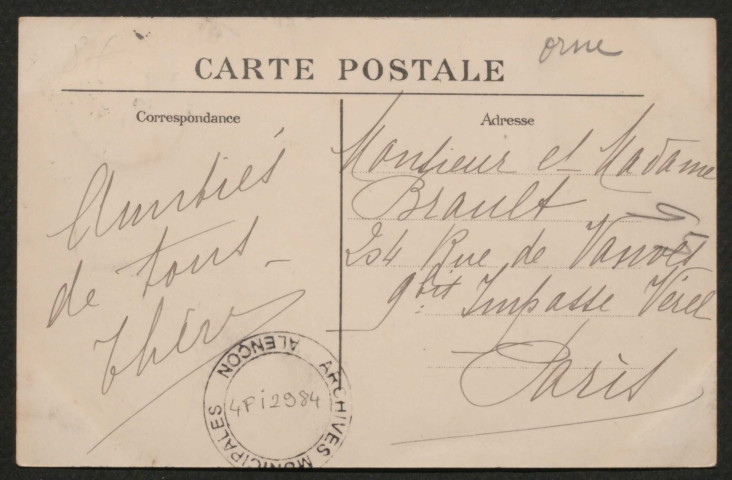 orne
CARTE POSTALE
Correspondance
Amitiés
de tous
Adresse
Monsieur et Madame
Brault
204 Rue de Vanves
9bis Impasse Vérel
Paris
ARCHIVES MUNICIPALES ALENÇON
4Fi2984